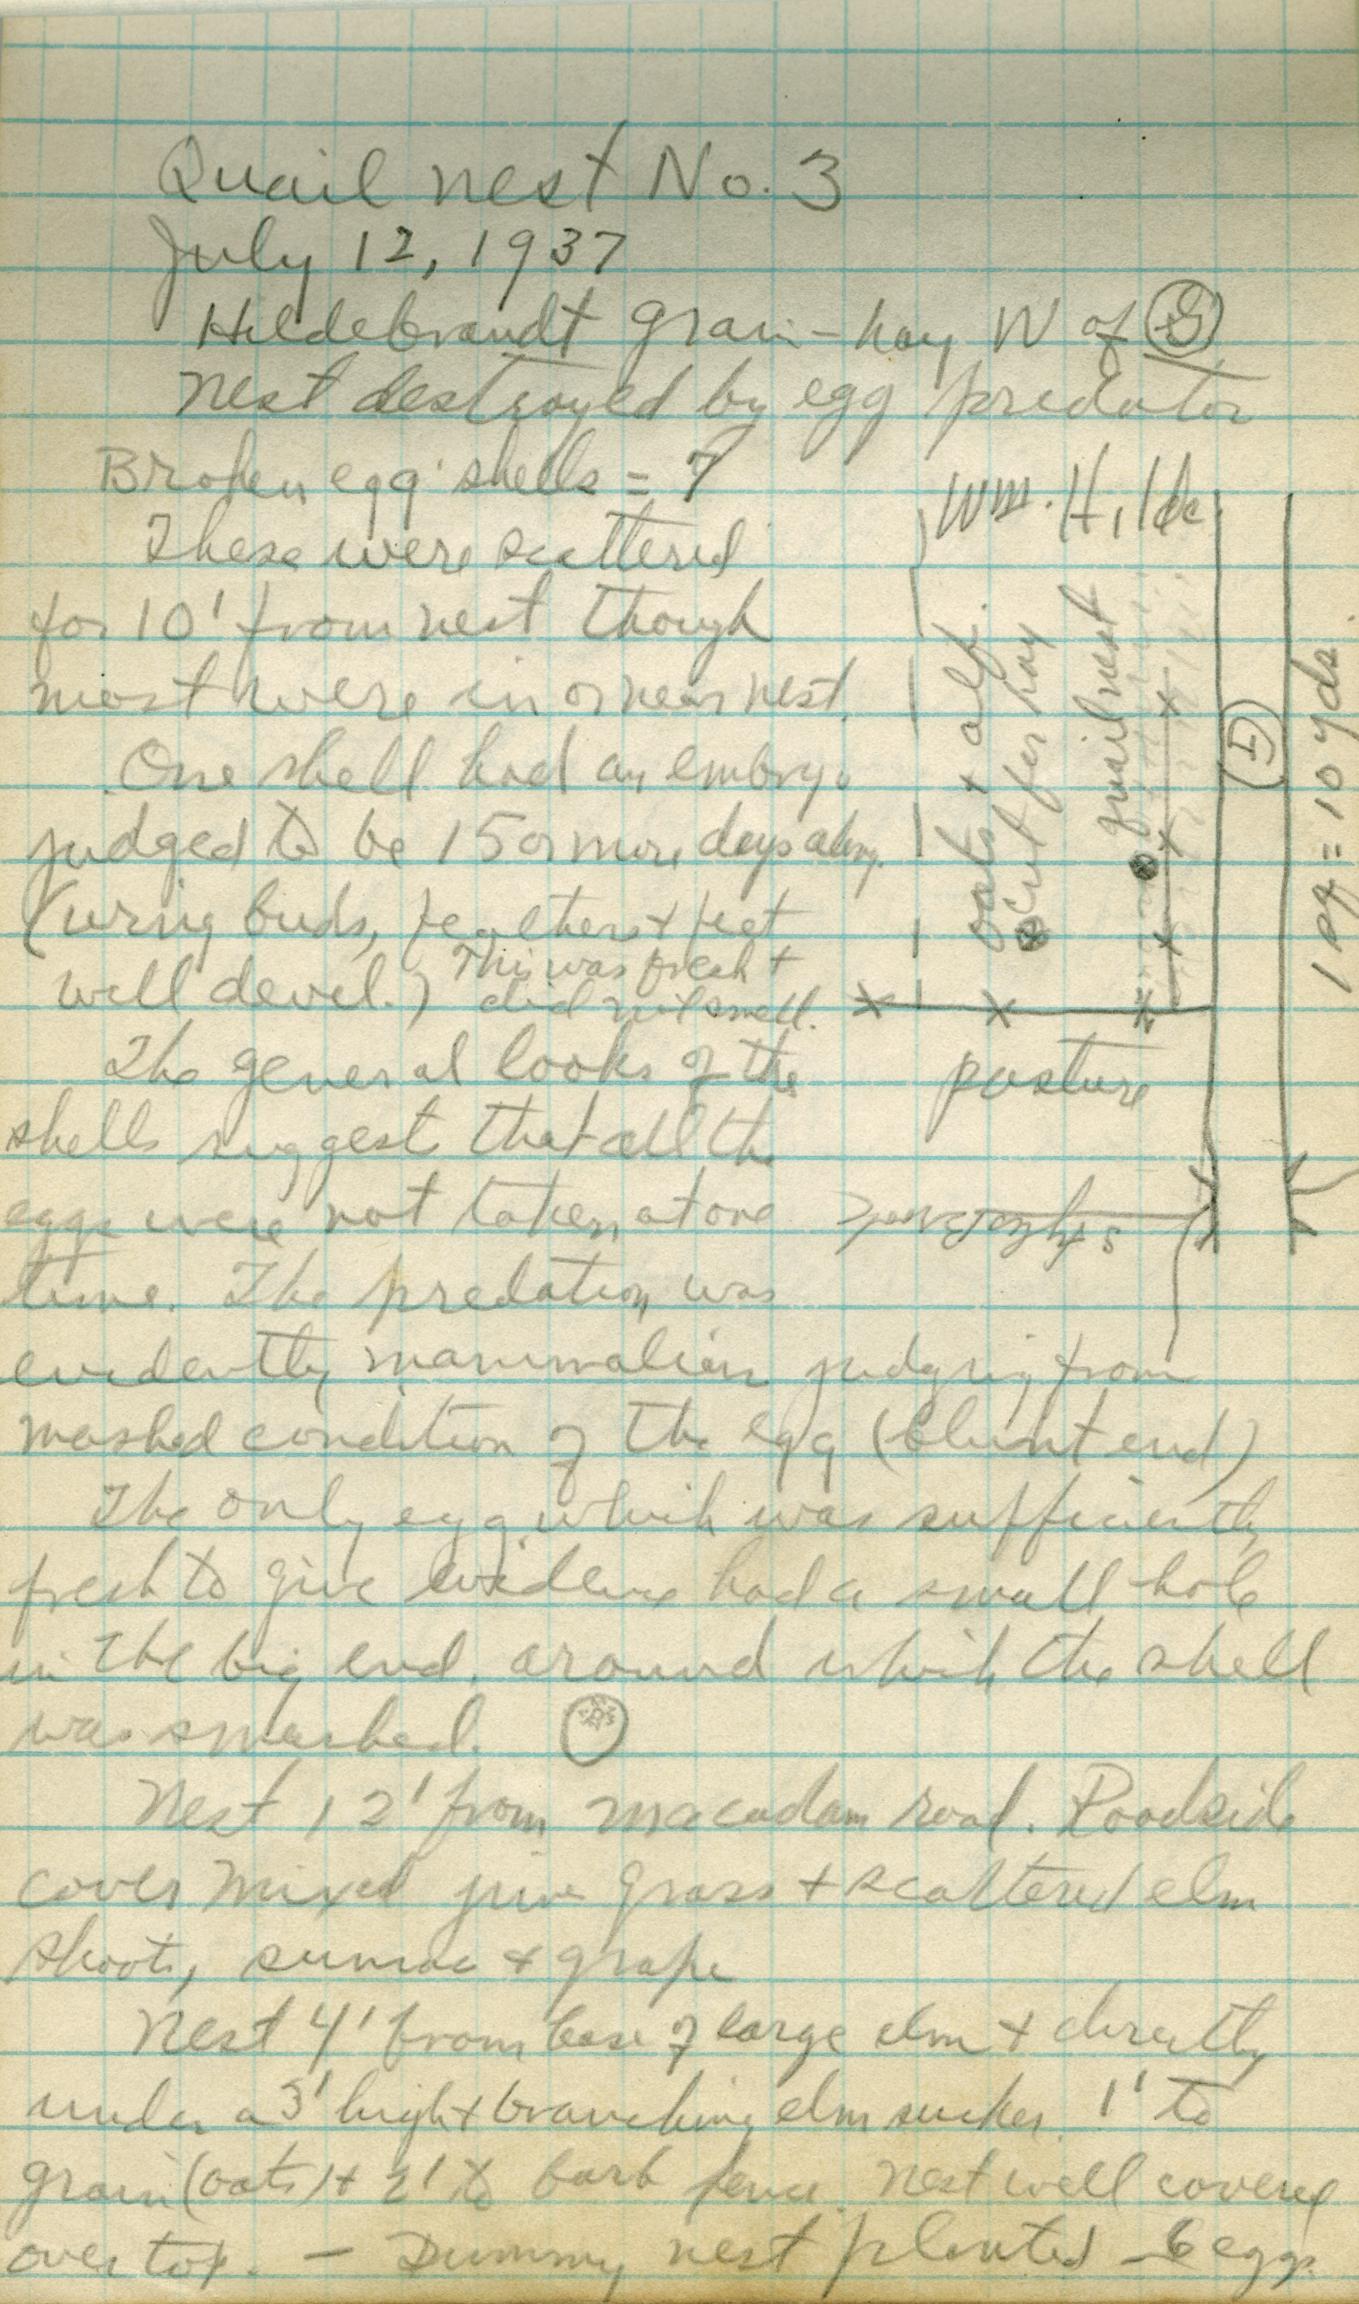 Quail nest No. 3
July 12, 1937
Hildebrandt grain-hay W of G
Nest destroyed by egg predator
Broken egg shells = 7
These were scattered
for 10' from nest though
most were in or near nest.
One shell had an embryo
judged to be 15 or more days along.
(wing buds, feathers + feet
well devel.) This was fresh +
did not smell.
The general looks of the
shells suggest that all the
eggs were not taken at one
time. The predation was
evidently mammalian judging from
mashed condition of the egg (blunt end)
The only egg which was sufficiently
fresh to give evidence had a small hole
in the big end, around which the shell
was smashed.
Nest 12' from macadam road. Roadside
cover mixed june grass + scattered elm
shoots, sumac + grape
Nest 4' from base of large elm + directly
under a 3' high + branching elm sucker. 1' to
grain (oats) + 2' to barb fence. Nest well covered
over top. - Dummy nest planted - 6 eggs
Wm. Hilde.
oats + alf.
cut for hay
quail nest
1 sq = 10 yds.
pasture